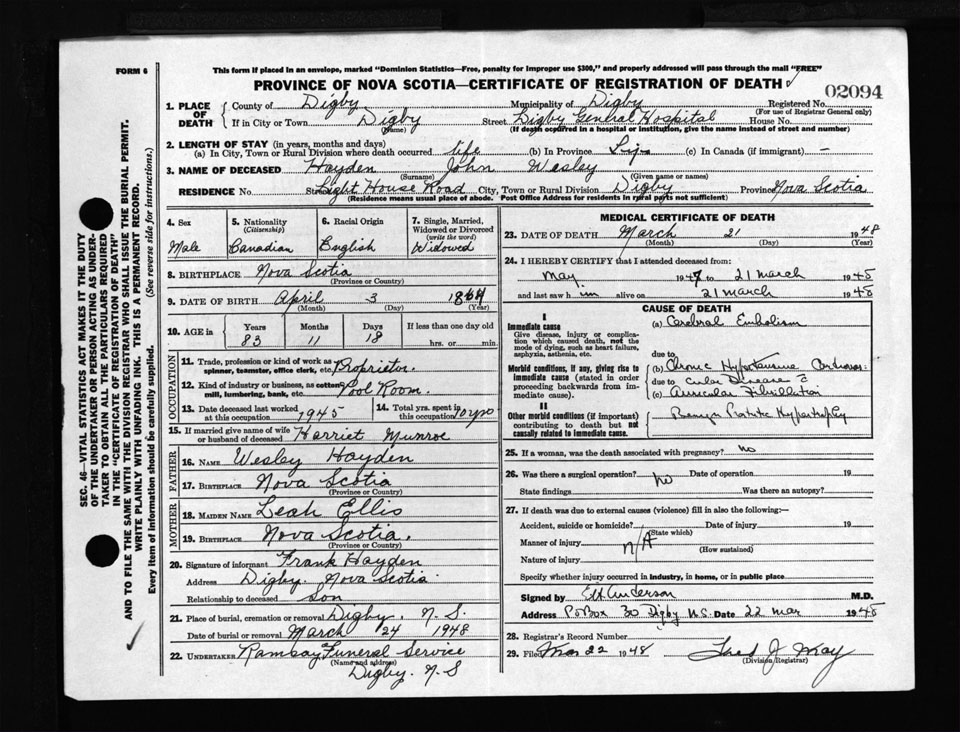 FORM 6
This form if placed in an envelope, marked "Dominion Statistics—Free, penalty for improper use $300," and properly addressed will pass through the mail "FREE"
PROVINCE OF NOVA SCOTIA—CERTIFICATE OF REGISTRATION OF DEATH
02094
1. PLACE OF DEATH
County of Digby Municipality of Digby Registered No.
(For use of Registrar General only)
If in City or Town Digby Street Digby General Hospital House No.
(Name) (If death occurred in a hospital or institution, give the name instead of street and number)
2. LENGTH OF STAY (in years, months and days)
(a) In City, Town or Rural Division where death occurred life (b) In Province (c) In Canada (if immigrant) —
3. NAME OF DECEASED Hayden John Wesley
(Surname) (Given name or names)
RESIDENCE No. Street Light House Road City, Town or Rural Division Digby Province Nova Scotia
(Residence means usual place of abode. Post Office Address for residents in rural parts not sufficient)
4. Sex
Male
5. Nationality
(Citizenship)
Canadian
6. Racial Origin
English
7. Single, Married, Widowed or Divorced
(write the word)
Widowed
8. BIRTHPLACE Nova Scotia
(Province or Country)
9. DATE OF BIRTH April 3 1864
(Month) (Day) (Year)
10. AGE in Years Months Days If less than one day old
83 11 18 hrs. or min.
OCCUPATION
11. Trade, profession or kind of work as spinner, teamster, office clerk, etc. Proprietor
12. Kind of industry or business, as cotton mill, lumbering, bank, etc. Pool Room.
13. Date deceased last worked at this occupation 1945
14. Total yrs. spent in this occupation
15. If married give name of wife or husband of deceased Harriet Munroe
FATHER
16. NAME Wesley Hayden
17. BIRTHPLACE Nova Scotia
(Province or Country)
MOTHER
18. MAIDEN NAME Leah Ellis
19. BIRTHPLACE Nova Scotia.
(Province or Country)
20. Signature of informant Frank Hayden
Address Digby. Nova Scotia.
Relationship to deceased Son
21. Place of burial, cremation or removal Digby. N. S.
Date of burial or removal March 24 1948
22. UNDERTAKER Funeral Service
(Name and address)
Digby. N. S
MEDICAL CERTIFICATE OF DEATH
23. DATE OF DEATH March 21 1948
(Month) (Day) (Year)
24. I HEREBY CERTIFY that I attended deceased from:
May 1947 to 21 march 1948
and last saw him alive on 21 march 1948
CAUSE OF DEATH
I
Immediate cause
Give disease, injury or complication which caused death, not the mode of dying, such as heart failure, asphyxia, asthenia, etc.
(a) Cerebral Embolism
due to
Morbid conditions, if any, giving rise to immediate cause (stated in order proceeding backwards from immediate cause).
(b) Chronic Hypertensive Cardiovas-
due to cular Disease c̄
(c) Auricular Fibrillation
II
Other morbid conditions (if important) contributing to death but not causally related to immediate cause.
Benign Prostatic Hypertrophy
25. If a woman, was the death associated with pregnancy? no
26. Was there a surgical operation? no Date of operation 19
State findings Was there an autopsy?
27. If death was due to external causes (violence) fill in also the following:—
Accident, suicide or homicide? Date of injury 19
(State which)
Manner of injury n/A
(How sustained)
Nature of injury
Specify whether injury occurred in industry, in home, or in public place
Signed by EH Anderson M.D.
Address PO Box 30 Digby N.S. Date 22 Mar 1948
28. Registrar's Record Number
29. Filed Mar 22 1948 Fred J. May
(Division Registrar)
SEC. 46—VITAL STATISTICS ACT MAKES IT THE DUTY
OF THE UNDERTAKER OR PERSON ACTING AS UNDER-
TAKER TO OBTAIN ALL THE PARTICULARS REQUIRED
IN THE "CERTIFICATE OF REGISTRATION OF DEATH"
AND TO FILE THE SAME WITH THE DIVISION REGISTRAR WHO SHALL ISSUE THE BURIAL PERMIT.
WRITE PLAINLY WITH UNFADING INK. THIS IS A PERMANENT RECORD.
Every item of information should be carefully supplied. (See reverse side for instructions.)